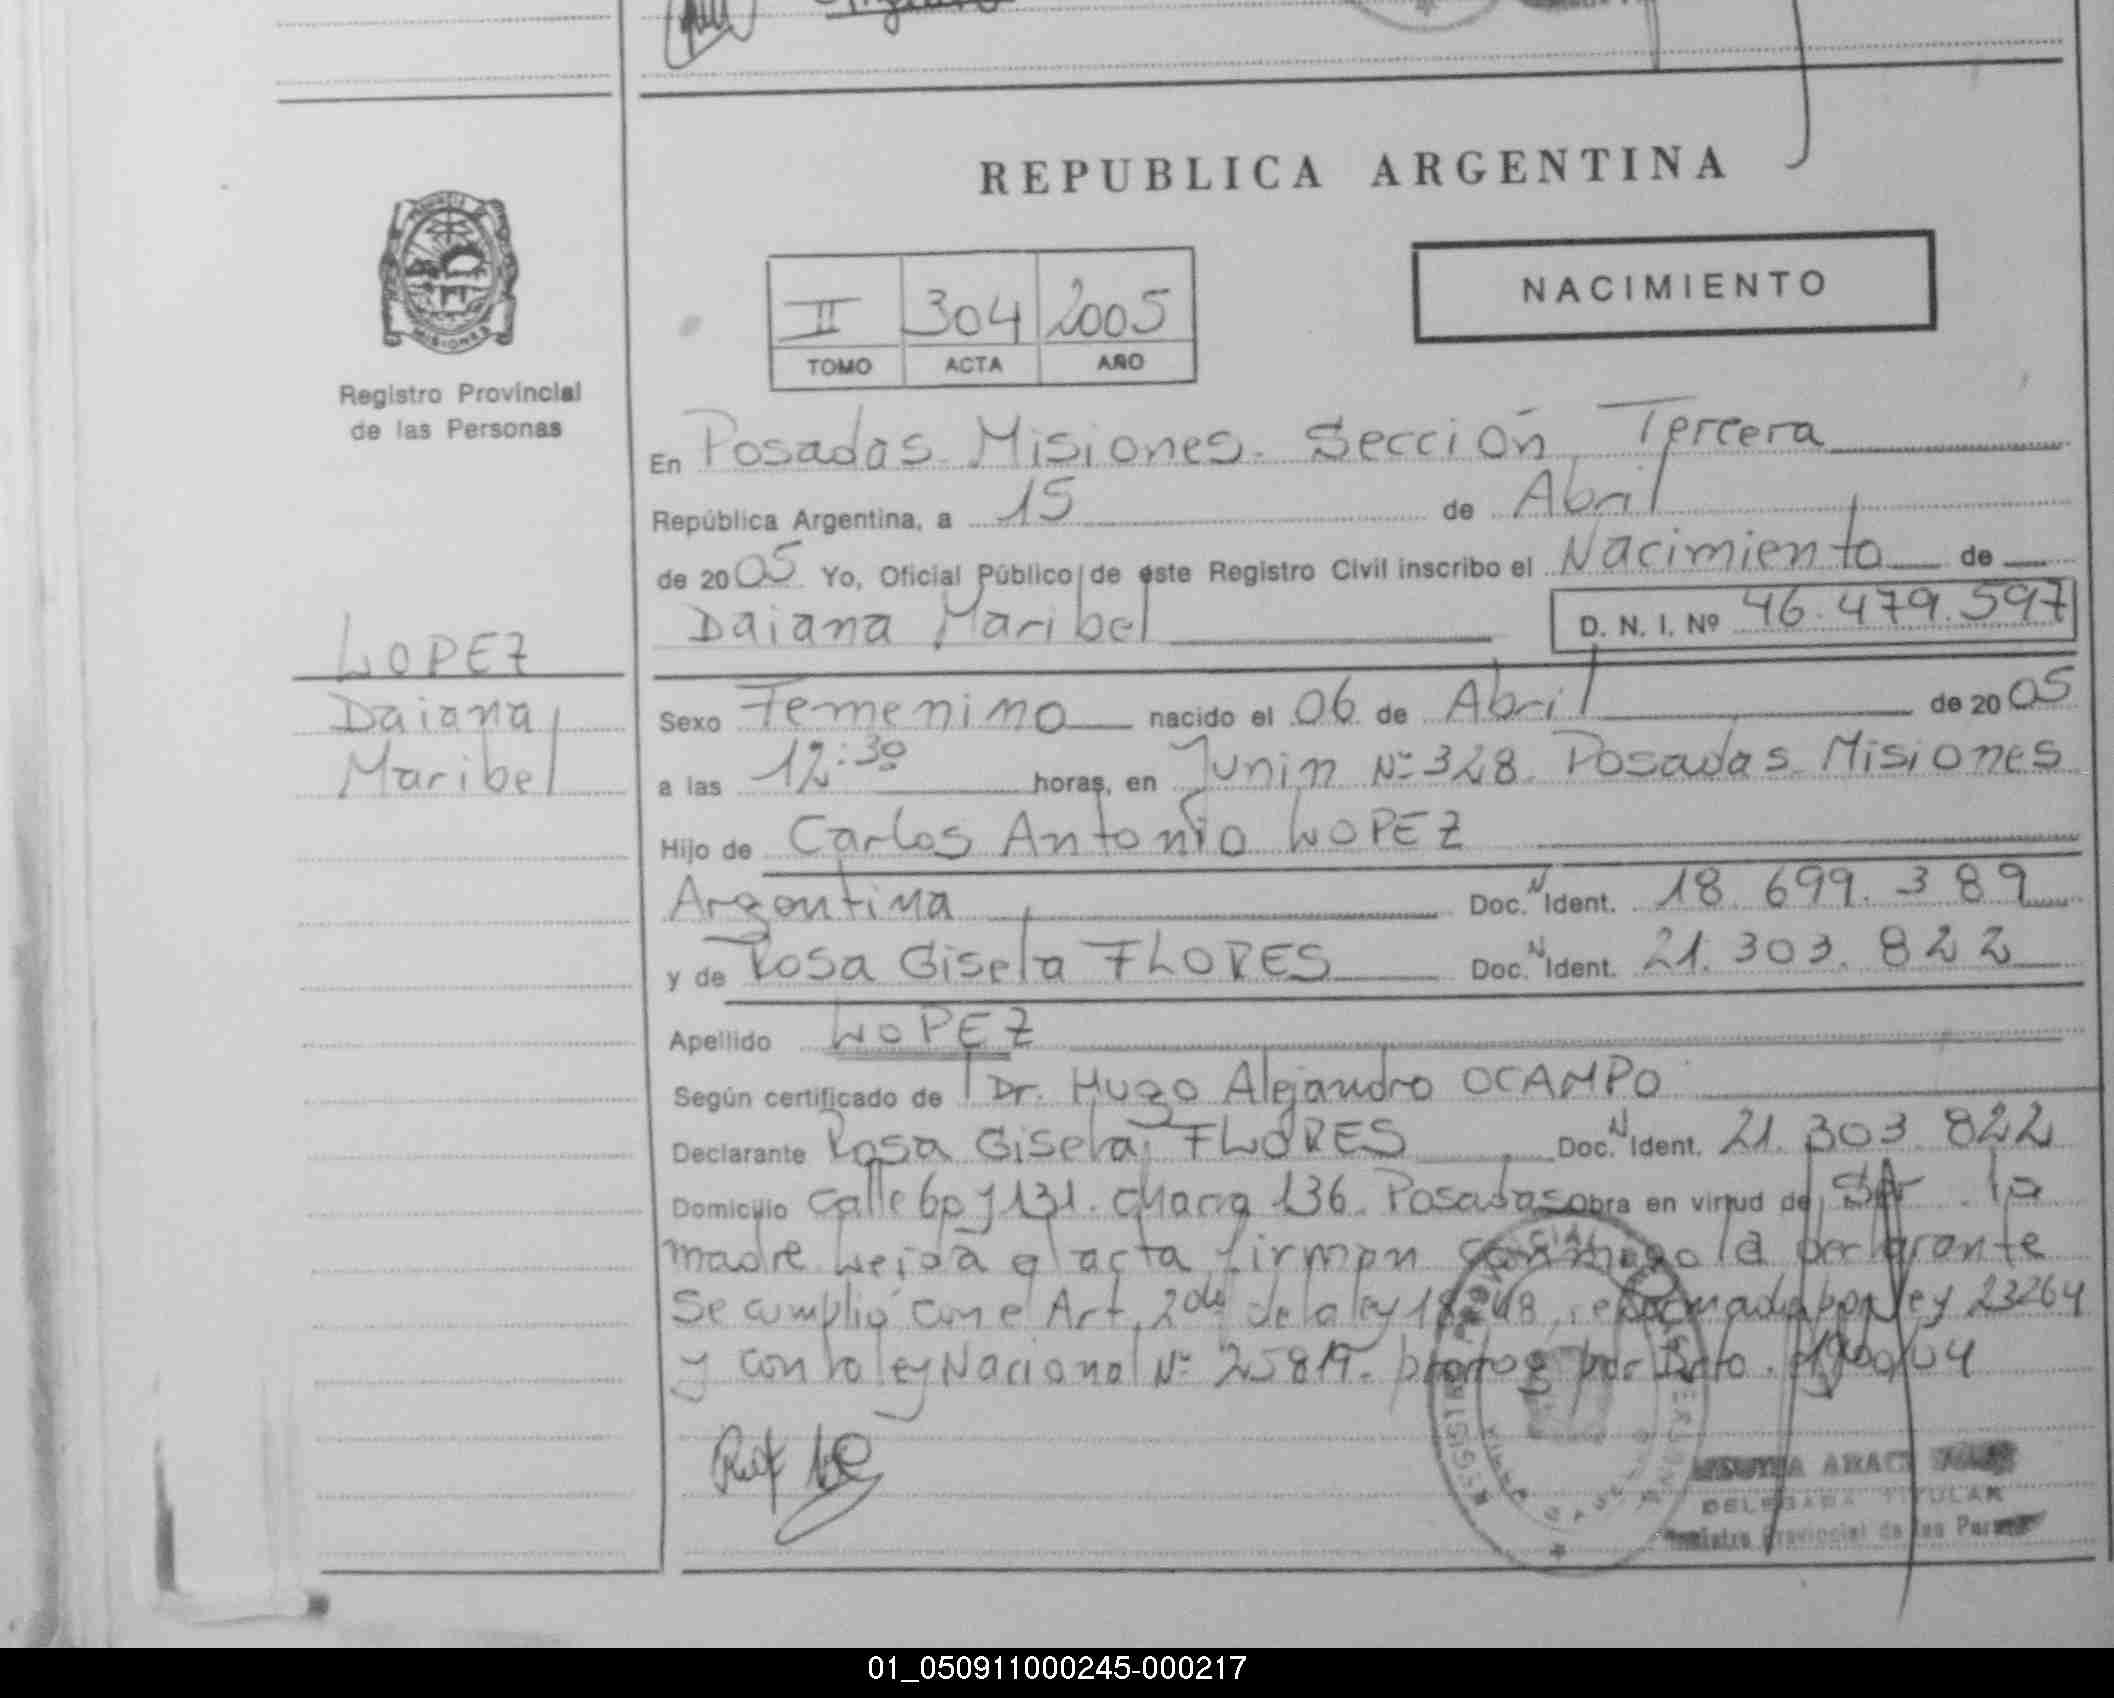 REPUBLICA ARGENTINA
NACIMIENTO
II 304 2005
TOMO ACTA AÑO
Registro Provincial
de las Personas
LOPEZ
Daiana
Maribel
En Posadas Misiones. Sección Tercera
República Argentina, a 15 de Abril
de 2005 Yo, Oficial Público de este Registro Civil inscribo el Nacimiento de
Daiana Maribel D. N. I. Nº 46.479.597
Sexo Femenino nacido el 06 de Abril de 2005
a las 12:30 horas, en Junin Nº 328. Posadas Misiones
Hijo de Carlos Antonio LOPEZ
Argentina Doc. N Ident. 18.699.389
y de Rosa Gisela FLORES Doc. N Ident. 21.303.822
Apellido LOPEZ
Según certificado de Dr. Hugo Alejandro OCAMPO
Declarante Rosa Gisela FLORES Doc. N Ident. 21.303.822
Domicilio Calle 60 y 131. Chacra 136. Posadas obra en virtud de Ser la
madre Leida el acta firman conmigo la declarante
Se cumplió con el Art. 2do de la ley 18248, reformada por ley 23264
y con la ley Nacional Nº 25819. por Dcto.
DELEGADA TITULAR
Registro Provincial de las Personas
01_050911000245-000217